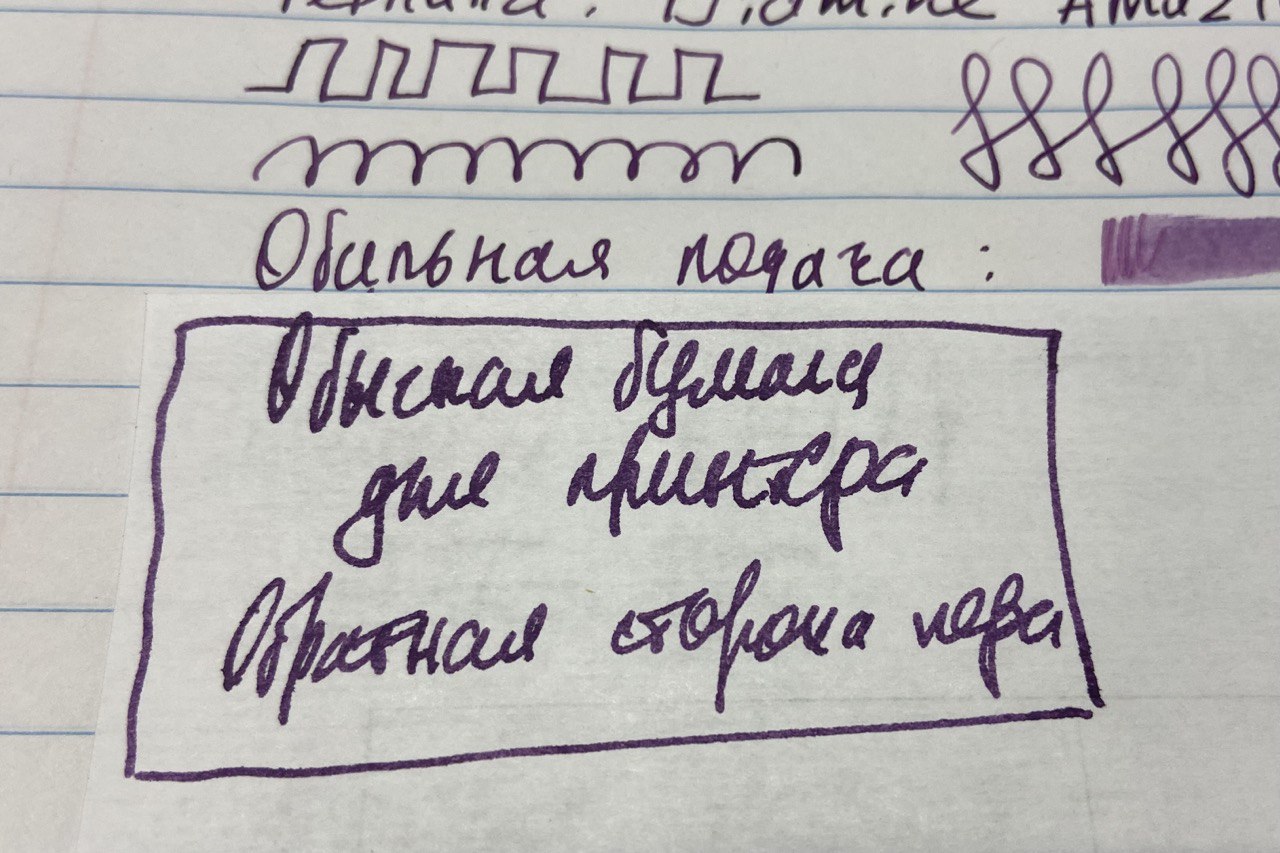 Чернила: Diamine Amaz
Обильная подача :
Обычная бумага
для принтера
Обратная сторона пера